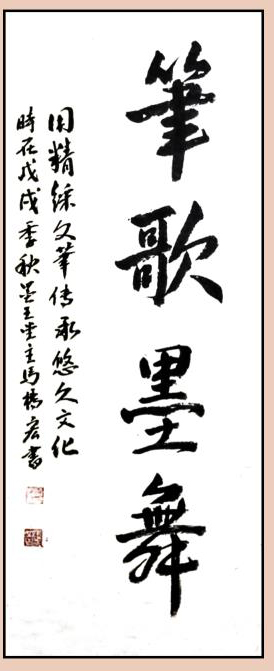 筆歌墨舞
用精綵文筆传承悠久文化
時在戊戌季秋墨王堂主馬橋宏書